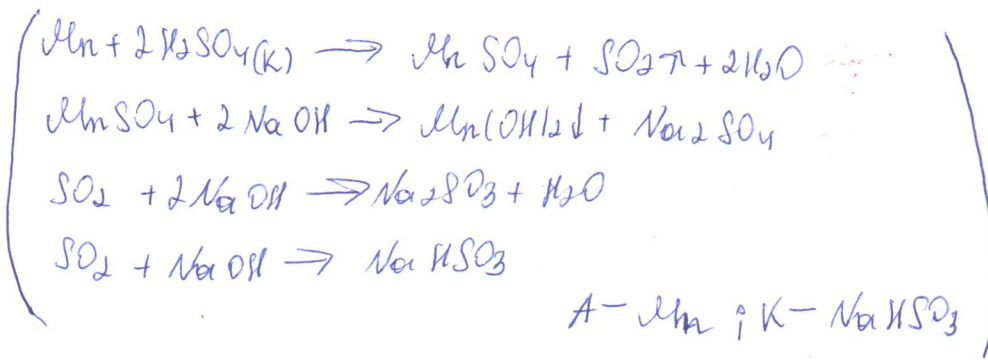 Mn + 2H2SO4(K) → MnSO4 + SO2↑ + 2H2O
MnSO4 + 2NaOH → Mn(OH)2↓ + Na2SO4
SO2 + 2NaOH → Na2SO3 + H2O
SO2 + NaOH → NaHSO3
A - Mn ; K - NaHSO3